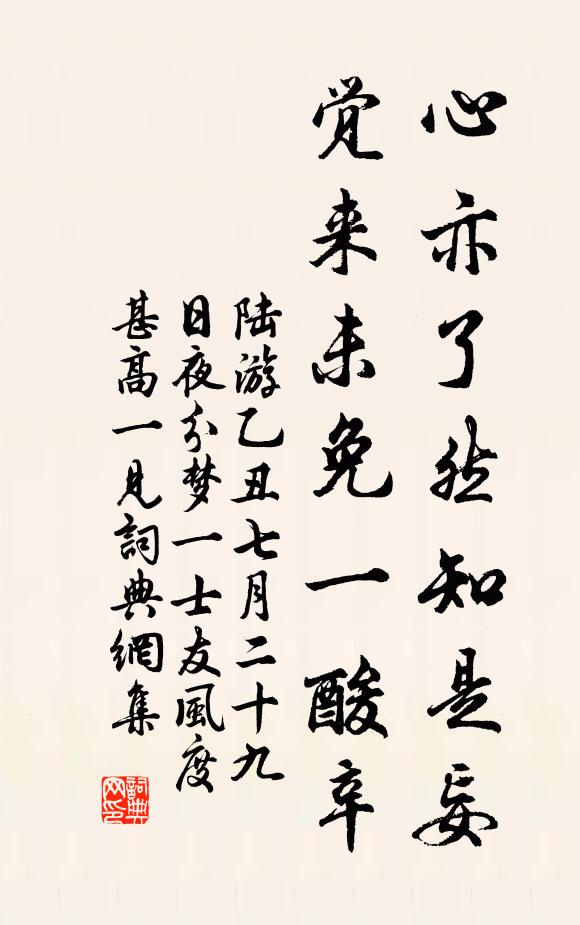 心亦了然知是妄
覚来未免一酸辛
陆游乙丑七月二十九
日夜分梦一士友風度
甚高一見詞典網集
詞典
网印